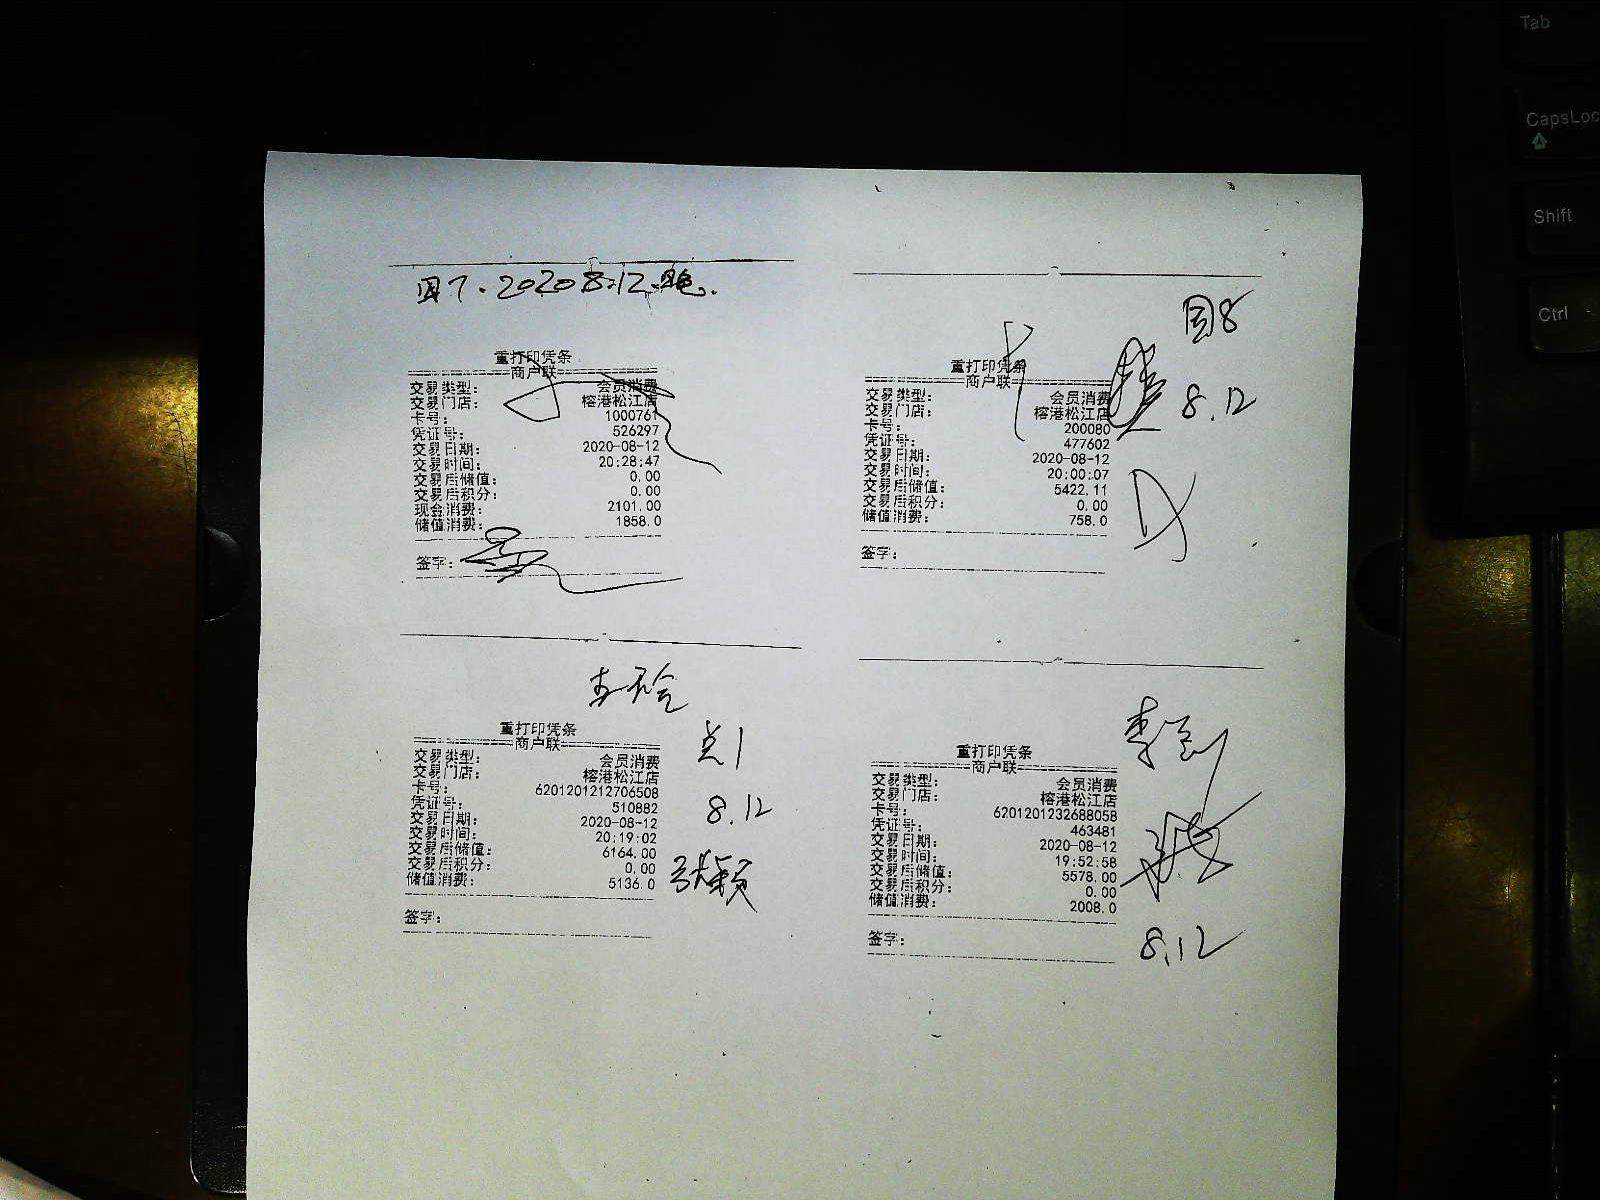 2020 8.12.
重打印凭条
商户联
交易类型： 会员消费
交易门店： 榕港松江店
卡号： 1000761
凭证号： 526297
交易日期： 2020-08-12
交易时间： 20:28:47
交易后储值： 0.00
交易后积分： 0.00
现金消费： 2101.00
储值消费： 1858.0
签字：
8
8.12
重打印凭条
商户联
交易类型： 会员消费
交易门店： 榕港松江店
卡号： 200080
凭证号： 477602
交易日期： 2020-08-12
交易时间： 20:00:07
交易后储值： 5422.11
交易后积分： 0.00
储值消费： 758.0
签字：
重打印凭条
商户联
交易类型： 会员消费
交易门店： 榕港松江店
卡号： 6201201212706508
凭证号： 510882
交易日期： 2020-08-12
交易时间： 20:19:02
交易后储值： 6164.00
交易后积分： 0.00
储值消费： 5136.0
签字：
8.12
张颖
重打印凭条
商户联
交易类型： 会员消费
交易门店： 榕港松江店
卡号： 6201201232688058
凭证号： 463481
交易日期： 2020-08-12
交易时间： 19:52:58
交易后储值： 5578.00
交易后积分： 0.00
储值消费： 2008.0
签字：
8.12
Tab
CapsLoc
Shift
Ctrl